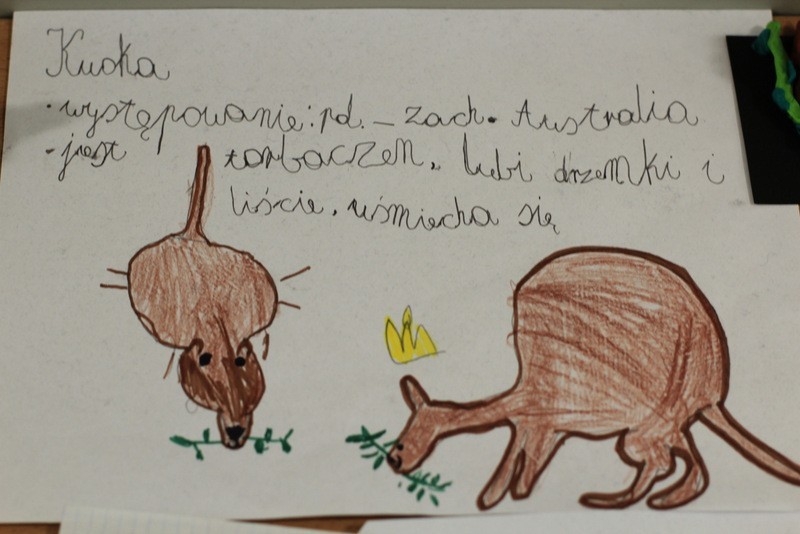 Kuoka
• występowanie: pd. - zach. Australia
- jest torbaczem, lubi drzemki i
liście, uśmiecha się